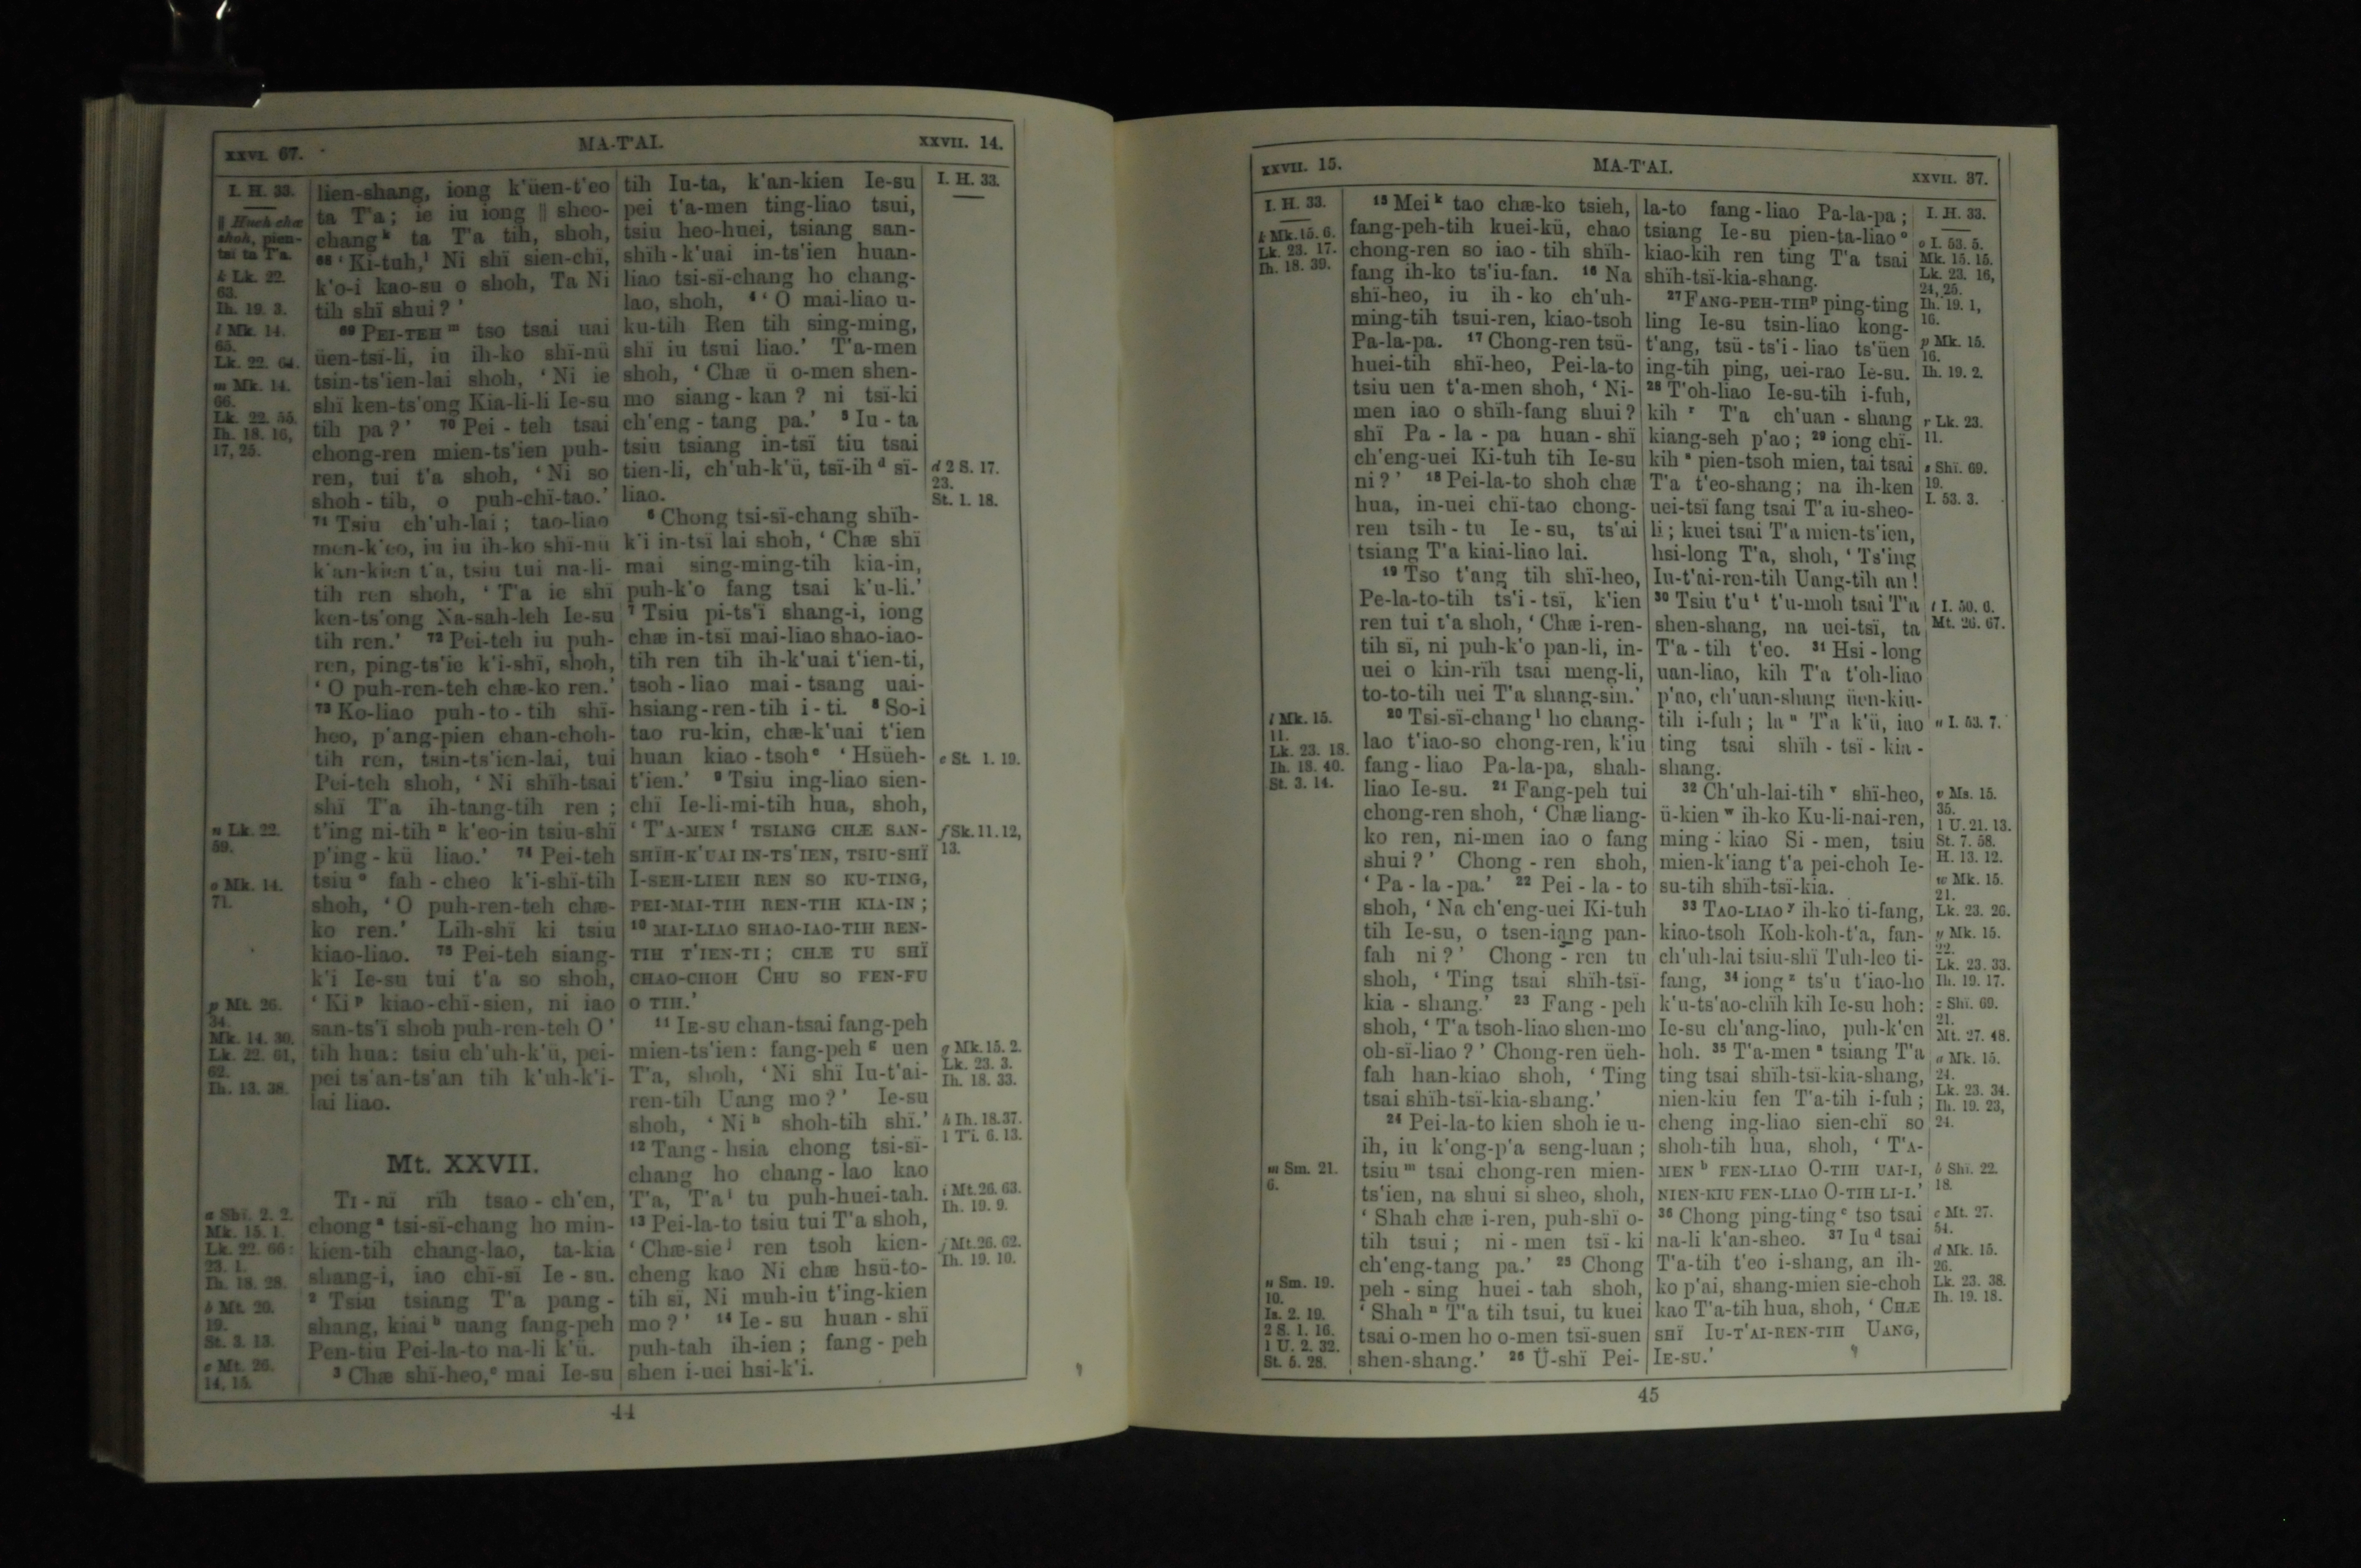 XXVI. 67.
MA-T'AI.
XXVII. 14.
I. H. 33.
|| Hueh chæ
shoh, pien-
tsï ta T'a.
k Lk. 22.
63.
Ih. 19. 3.
l Mk. 14.
65.
Lk. 22. 64.
m Mk. 14.
66.
Lk. 22. 55.
Ih. 18. 16,
17, 25.
n Lk. 22.
59.
o Mk. 14.
71.
p Mt. 26.
34.
Mk. 14. 30.
Lk. 22. 61,
62.
Ih. 13. 38.
a Shï. 2. 2.
Mk. 15. 1.
Lk. 22. 66:
23. 1.
Ih. 18. 28.
b Mt. 20.
19.
St. 3. 13.
c Mt. 26.
14, 15.
lien-shang, iong k'üen-t'eo
ta T'a; ie iu iong || sheo-
chang k ta T'a tih, shoh,
68 'Ki-tuh, l Ni shï sien-chï,
k'o-i kao-su o shoh, Ta Ni
tih shï shui?'
69 PEI-TEH m tso tsai uai
üen-tsï-li, iu ih-ko shï-nü
tsin-ts'ien-lai shoh, 'Ni ie
shï ken-ts'ong Kia-li-li Ie-su
tih pa?' 70 Pei-teh tsai
chong-ren mien-ts'ien puh-
ren, tui t'a shoh, 'Ni so
shoh-tih, o puh-chï-tao.'
71 Tsiu ch'uh-lai; tao-liao
men-k'eo, iu iu ih-ko shï-nü
k'an-kien t'a, tsiu tui na-li-
tih ren shoh, 'T'a ie shï
ken-ts'ong Na-sah-leh Ie-su
tih ren.' 72 Pei-teh iu puh-
ren, ping-ts'ie k'i-shï, shoh,
'O puh-ren-teh chæ-ko ren.'
73 Ko-liao puh-to-tih shï-
heo, p'ang-pien chan-choh-
tih ren, tsin-ts'ien-lai, tui
Pei-teh shoh, 'Ni shïh-tsai
shï T'a ih-tang-tih ren;
t'ing ni-tih n k'eo-in tsiu-shï
p'ing-kü liao.' 74 Pei-teh
tsiu o fah-cheo k'i-shï-tih
shoh, 'O puh-ren-teh chæ-
ko ren.' Lih-shï ki tsiu
kiao-liao. 75 Pei-teh siang-
k'i Ie-su tui t'a so shoh,
'Ki p kiao-chï-sien, ni iao
san-ts'ï shoh puh-ren-teh O'
tih hua: tsiu ch'uh-k'ü, pei-
pei ts'an-ts'an tih k'uh-k'i-
lai liao.
Mt. XXVII.
TI-RÏ rïh tsao-ch'en,
chong a tsi-sï-chang ho min-
kien-tih chang-lao, ta-kia
shang-i, iao chï-sï Ie-su.
2 Tsiu tsiang T'a pang-
shang, kiai b uang fang-peh
Pen-tiu Pei-la-to na-li k'ü.
3 Chæ shï-heo, c mai Ie-su
tih Iu-ta, k'an-kien Ie-su
pei t'a-men ting-liao tsui,
tsiu heo-huei, tsiang san-
shïh-k'uai in-ts'ien huan-
liao tsi-sï-chang ho chang-
lao, shoh, 4 'O mai-liao u-
ku-tih Ren tih sing-ming,
shï iu tsui liao.' T'a-men
shoh, 'Chæ ü o-men shen-
mo siang-kan? ni tsï-ki
ch'eng-tang pa.' 5 Iu-ta
tsiu tsiang in-tsï tiu tsai
tien-li, ch'uh-k'ü, tsï-ih d sï-
liao.
6 Chong tsi-sï-chang shïh-
k'i in-tsï lai shoh, 'Chæ shï
mai sing-ming-tih kia-in,
puh-k'o fang tsai k'u-li.'
7 Tsiu pi-ts'ï shang-i, iong
chæ in-tsï mai-liao shao-iao-
tih ren tih ih-k'uai t'ien-ti,
tsoh-liao mai-tsang uai-
hsiang-ren-tih i-ti. 8 So-i
tao ru-kin, chæ-k'uai t'ien
huan kiao-tsoh e 'Hsüeh-
t'ien.' 9 Tsiu ing-liao sien-
chï Ie-li-mi-tih hua, shoh,
'T'A-MEN f TSIANG CHÆ SAN-
SHÏH-K'UAI IN-TS'IEN, TSIU-SHÏ
I-SEH-LIEH REN SO KU-TING,
PEI-MAI-TIH REN-TIH KIA-IN;
10 MAI-LIAO SHAO-IAO-TIH REN-
TIH T'IEN-TI; CHÆ TU SHÏ
CHAO-CHOH CHU SO FEN-FU
O TIH.'
11 IE-SU chan-tsai fang-peh
mien-ts'ien: fang-peh g uen
T'a, shoh, 'Ni shï Iu-t'ai-
ren-tih Uang mo?' Ie-su
shoh, 'Ni h shoh-tih shï.'
12 Tang-hsia chong tsi-sï-
chang ho chang-lao kao
T'a, T'a i tu puh-huei-tah.
13 Pei-la-to tsiu tui T'a shoh,
'Chæ-sie j ren tsoh kien-
cheng kao Ni chæ hsü-to-
tih sï, Ni muh-iu t'ing-kien
mo?' 14 Ie-su huan-shï
puh-tah ih-ien; fang-peh
shen i-uei hsi-k'i.
I. H. 33.
d 2 S. 17.
23.
St. 1. 18.
e St. 1. 19.
f Sk. 11. 12,
13.
g Mk. 15. 2.
Lk. 23. 3.
Ih. 18. 33.
h Ih. 18. 37.
1 Ti. 6. 13.
i Mt. 26. 63.
Ih. 19. 9.
j Mt. 26. 62.
Ih. 19. 10.
44
XXVII. 15.
MA-T'AI.
XXVII. 37.
I. H. 33.
k Mk. 15. 6.
Lk. 23. 17.
Ih. 18. 39.
l Mk. 15.
11.
Lk. 23. 18.
Ih. 18. 40.
St. 3. 14.
m Sm. 21.
6.
n Sm. 19.
10.
Is. 2. 19.
2 S. 1. 16.
1 U. 2. 32.
St. 5. 28.
15 Mei k tao chæ-ko tsieh,
fang-peh-tih kuei-kü, chao
chong-ren so iao-tih shïh-
fang ih-ko ts'iu-fan. 16 Na
shï-heo, iu ih-ko ch'uh-
ming-tih tsui-ren, kiao-tsoh
Pa-la-pa. 17 Chong-ren tsü-
huei-tih shï-heo, Pei-la-to
tsiu uen t'a-men shoh, 'Ni-
men iao o shïh-fang shui?
shï Pa-la-pa huan-shï
ch'eng-uei Ki-tuh tih Ie-su
ni?' 18 Pei-la-to shoh chæ
hua, in-uei chï-tao chong-
ren tsih-tu Ie-su, ts'ai
tsiang T'a kiai-liao lai.
19 Tso t'ang tih shï-heo,
Pe-la-to-tih ts'i-tsï, k'ien
ren tui t'a shoh, 'Chæ i-ren-
tih sï, ni puh-k'o pan-li, in-
uei o kin-rïh tsai meng-li,
to-to-tih uei T'a shang-sin.'
20 Tsi-sï-chang l ho chang-
lao t'iao-so chong-ren, k'iu
fang-liao Pa-la-pa, shah-
liao Ie-su. 21 Fang-peh tui
chong-ren shoh, 'Chæ liang-
ko ren, ni-men iao o fang
shui?' Chong-ren shoh,
'Pa-la-pa.' 22 Pei-la-to
shoh, 'Na ch'eng-uei Ki-tuh
tih Ie-su, o tsen-iang pan-
fah ni?' Chong-ren tu
shoh, 'Ting tsai shïh-tsï-
kia-shang.' 23 Fang-peh
shoh, 'T'a tsoh-liao shen-mo
oh-sï-liao?' Chong-ren üeh-
fah han-kiao shoh, 'Ting
tsai shïh-tsï-kia-shang.'
24 Pei-la-to kien shoh ie u-
ih, iu k'ong-p'a seng-luan;
tsiu m tsai chong-ren mien-
ts'ien, na shui si sheo, shoh,
'Shah chæ i-ren, puh-shï o-
tih tsui; ni-men tsï-ki
ch'eng-tang pa.' 25 Chong
peh-sing huei-tah shoh,
'Shah n T'a tih tsui, tu kuei
tsai o-men ho o-men tsï-suen
shen-shang.' 26 Ü-shï Pei-
la-to fang-liao Pa-la-pa;
tsiang Ie-su pien-ta-liao o
kiao-kih ren ting T'a tsai
shïh-tsï-kia-shang.
27 FANG-PEH-TIH p ping-ting
ling Ie-su tsin-liao kong-
t'ang, tsü-ts'i-liao ts'üen
ing-tih ping, uei-rao Ie-su.
28 T'oh-liao Ie-su-tih i-fuh,
kih r T'a ch'uan-shang
kiang-seh p'ao; 29 iong chï-
kih s pien-tsoh mien, tai tsai
T'a t'eo-shang; na ih-ken
uei-tsï fang tsai T'a iu-sheo-
li; kuei tsai T'a mien-ts'ien,
hsi-long T'a, shoh, 'Ts'ing
Iu-t'ai-ren-tih Uang-tih an!
30 Tsiu t'u t t'u-moh tsai T'a
shen-shang, na uei-tsï, ta
T'a-tih t'eo. 31 Hsi-long
uan-liao, kih T'a t'oh-liao
p'ao, ch'uan-shang üen-kiu-
tih i-fuh; la u T'a k'ü, iao
ting tsai shïh-tsï-kia-
shang.
32 Ch'uh-lai-tih v shï-heo,
ü-kien w ih-ko Ku-li-nai-ren,
ming-kiao Si-men, tsiu
mien-k'iang t'a pei-choh Ie-
su-tih shïh-tsï-kia.
33 TAO-LIAO y ih-ko ti-fang,
kiao-tsoh Koh-koh-t'a, fan-
ch'uh-lai tsiu-shï Tuh-leo ti-
fang, 34 iong z ts'u t'iao-ho
k'u-ts'ao-chïh kih Ie-su hoh:
Ie-su ch'ang-liao, puh-k'en
hoh. 35 T'a-men a tsiang T'a
ting tsai shïh-tsï-kia-shang,
nien-kiu fen T'a-tih i-fuh;
cheng ing-liao sien-chï so
shoh-tih hua, shoh, 'T'A-
MEN b FEN-LIAO O-TIH UAI-I,
NIEN-KIU FEN-LIAO O-TIH LI-I.'
36 Chong ping-ting c tso tsai
na-li k'an-sheo. 37 Iu d tsai
T'a-tih t'eo i-shang, an ih-
ko p'ai, shang-mien sie-choh
kao T'a-tih hua, shoh, 'CHÆ
SHÏ IU-T'AI-REN-TIH UANG,
IE-SU.'
I. H. 33.
o I. 53. 5.
Mk. 15. 15.
Lk. 23. 16,
24, 25.
Ih. 19. 1,
16.
p Mk. 15.
16.
Ih. 19. 2.
r Lk. 23.
11.
s Shï. 69.
19.
I. 53. 3.
t I. 50. 6.
Mt. 26. 67.
u I. 53. 7.
v Ms. 15.
35.
1 U. 21. 13.
St. 7. 58.
H. 13. 12.
w Mk. 15.
21.
Lk. 23. 26.
y Mk. 15.
22.
Lk. 23. 33.
Ih. 19. 17.
z Shï. 69.
21.
Mt. 27. 48.
a Mk. 15.
24.
Lk. 23. 34.
Ih. 19. 23,
24.
b Shï. 22.
18.
c Mt. 27.
54.
d Mk. 15.
26.
Lk. 23. 38.
Ih. 19. 18.
45